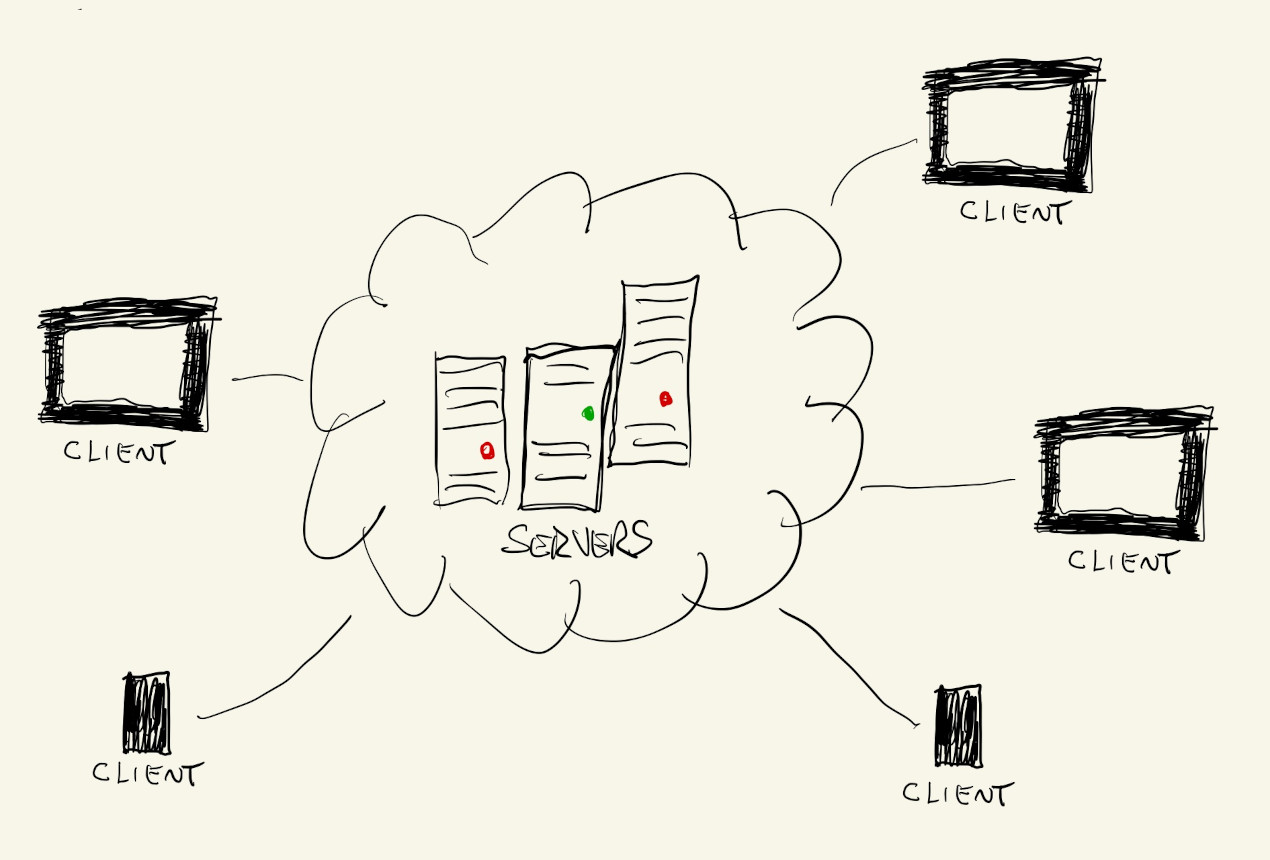 CLIENT
CLIENT
SERVERS
CLIENT
CLIENT
CLIENT